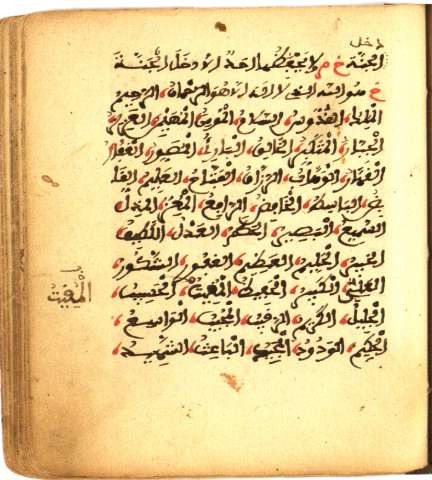 دخل
الجنة خ م لا يحفظها احد الا دخل الجنة
خ هو الله الذي لا اله الا هو الرحمان الرحيم
الملك القدوس السلام المومن المهيمن العزيز
الجبار المتكبر الخالق البارئ المصور الغفار
القهار الوهاب الرزاق الفتاح العليم القا
بض الباسط الخافض الرافع المعز المذل
السميع البصير الحكم العدل اللطيف
الخبير الحليم العظيم الغفور الشكور
العلي الكبير الحفيظ المغيث الحسيب
الجليل الكريم الرقيب المجيب الواسع
الحكيم الودود المجيد الباعث الشهيد
المقيت